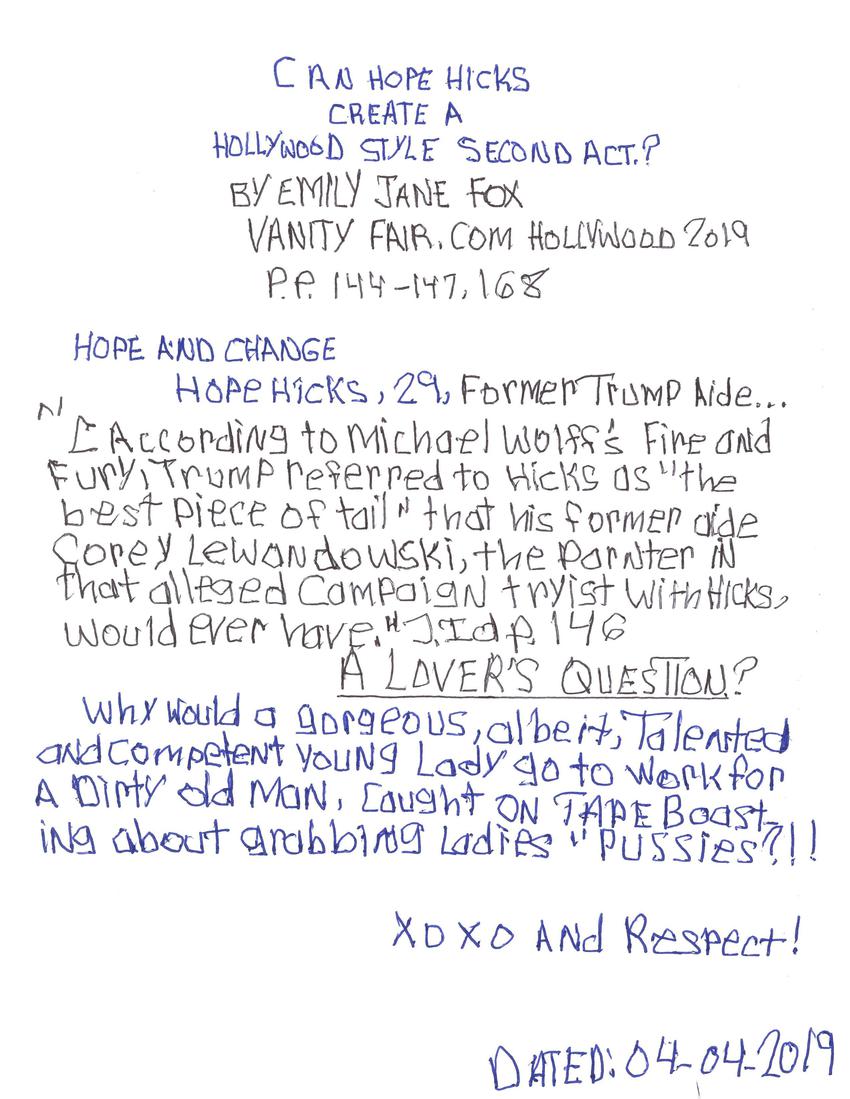 CAN HOPE HICKS
CREATE A
HOLLYWOOD STYLE SECOND ACT.?
BY EMILY JANE FOX
VANITY FAIR.COM HOLLYWOOD 2019
P.P. 144-147, 168
HOPE AND CHANGE
HOPE HICKS, 29, Former Trump Aide...
"[According to Michael Wolff's Fire and
Fury, Trump referred to Hicks as "the
best piece of tail" that his former aide
Corey Lewandowski, the Parnter IN
that alleged Campaign tryist With Hicks,
would ever have."].Id p. 146
A LOVER'S QUESTION?
Why would a gorgeous, albeit, Talented
and competent young Lady go to work for
A Dirty old Man, Caught ON TAPE Boast-
ing about grabbing Ladies "Pussies?!!
XOXO AND Respect!
DATED: 04-04-2019